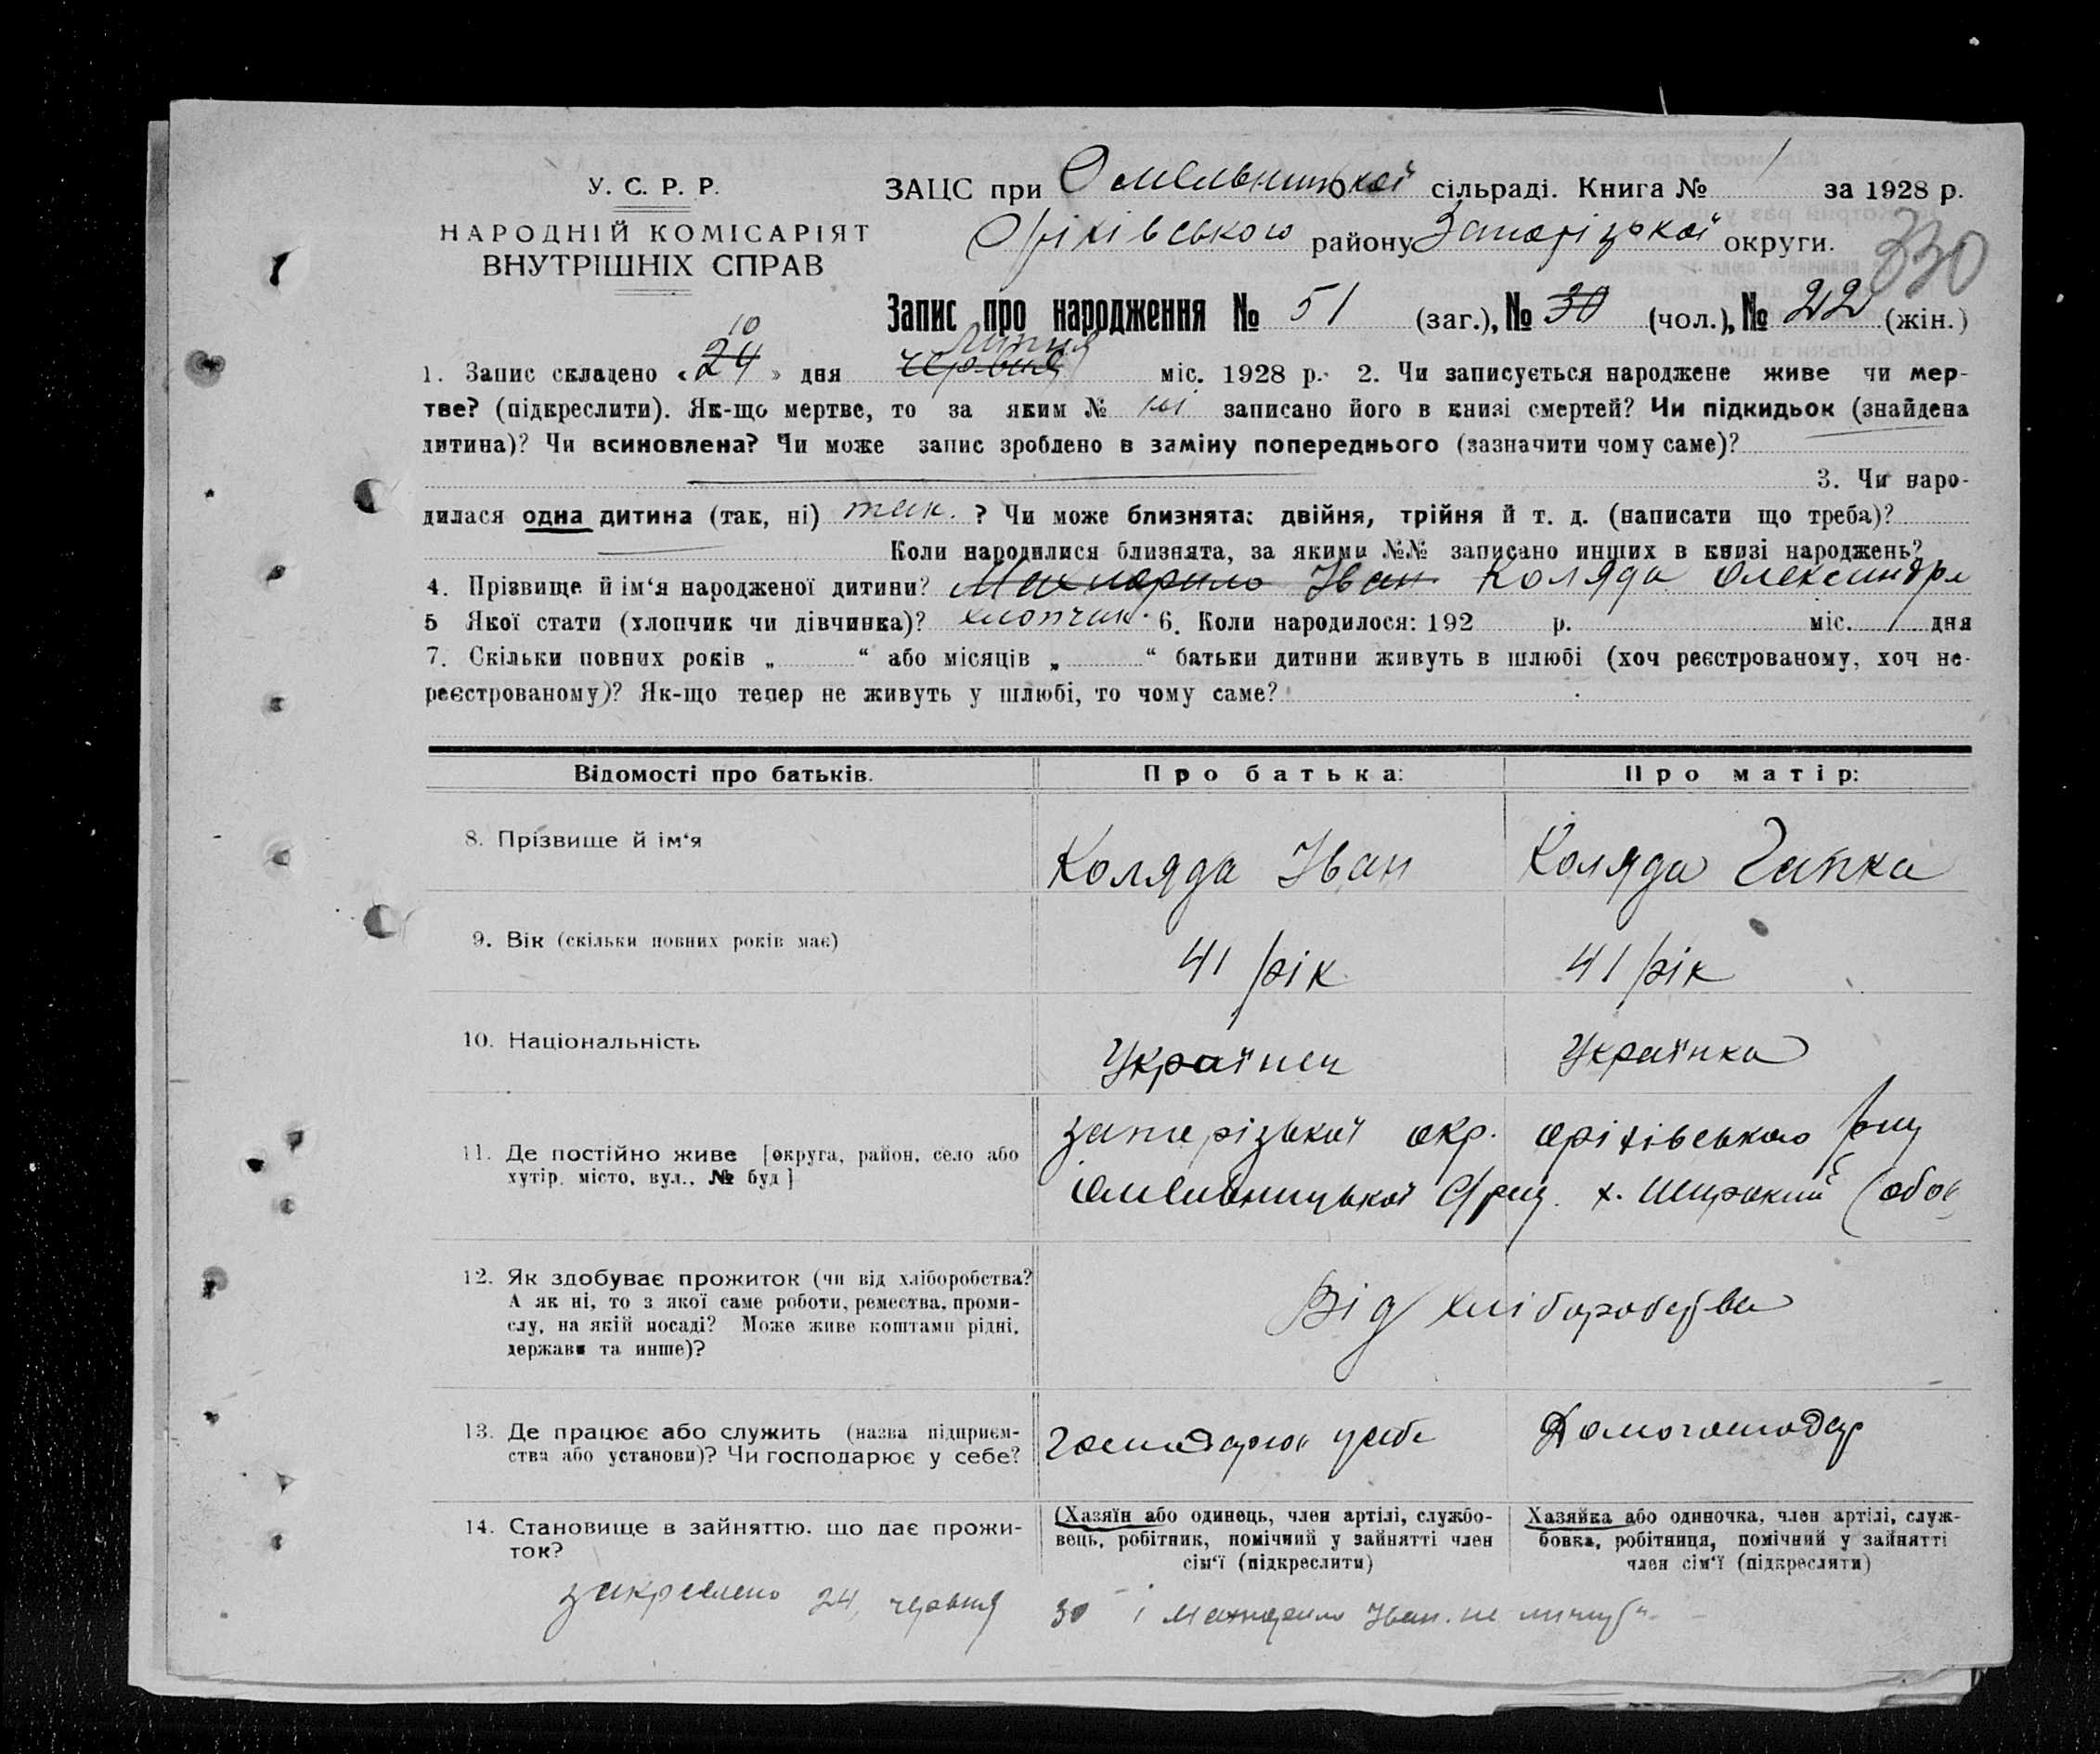 У. С. Р. Р.
НАРОДНІЙ КОМІСАРІЯТ
ВНУТРІШНІХ СПРАВ
ЗАЦС при Омельницькой сільраді. Книга № 1 за 1928 р.
Оріхівського району Запорізької округи.
330
Запис про народження № 51 (заг.), № 30 (чол.), № 22 (жін.)
10 Липня
1. Запис складено « 24 » дня червня міс. 1928 р. 2. Чи записується народжене живе чи мер-
тве? (підкреслити). Як-що мертве, то за яким № записано його в книзі смертей? Чи підкидьок (знайдена
дитина)? Чи всиновлена? Чи може запис зроблено в заміну попереднього (зазначити чому саме)?
3. Чи наро-
дилася одна дитина (так, ні) так. ? Чи може близнята: двійня, трійня й т. д. (написати що треба)?
Коли народилися близнята, за якими №№ записано инших в книзі народжень?
4. Прізвище й ім‘я народженої дитини? Іван Коляда Олександра
5 Якої стати (хлопчик чи дівчинка)? хлопчик. 6. Коли народилося: 192 р. міс. дня
7. Скільки повних років „ “ або місяців „ “ батьки дитини живуть в шлюбі (хоч реєстрованому, хоч не-
реєстрованому)? Як-що тепер не живуть у шлюбі, то чому саме?
Відомості про батьків. Про батька: Про матір:
8. Прізвище й ім‘я Коляда Іван Коляда Гапка
9. Вік (скільки повних років має) 41 рік 41 рік
10. Національність Українец Українка
11. Де постійно живе [округа, район, село або
хутір, місто, вул., № буд]
запорізької окр. оріхівського
Омельницької с/рад. х. Широкий
12. Як здобуває прожиток (чи від хліборобства?
А як ні, то з якої саме роботи, ремества, проми-
слу, на якій посаді? Може живе коштами рідні,
держави та инше)?
Від хліборобства
13. Де працює або служить (назва підприєм-
ства або установи)? Чи господарює у себе?
господарює у себе Домогосподар
14. Становище в зайняттю, що дає прожи-
ток?
(Хазяїн або одинець, член артілі, службо-
вець, робітник, помічний у зайнятті член
сім‘ї (підкреслити)
Хазяйка або одиночка, член артілі, служ-
бовка, робітниця, помічний у зайнятті
член сім‘ї (підкреслити)
закреслено 24, червня 30 і Іван. не